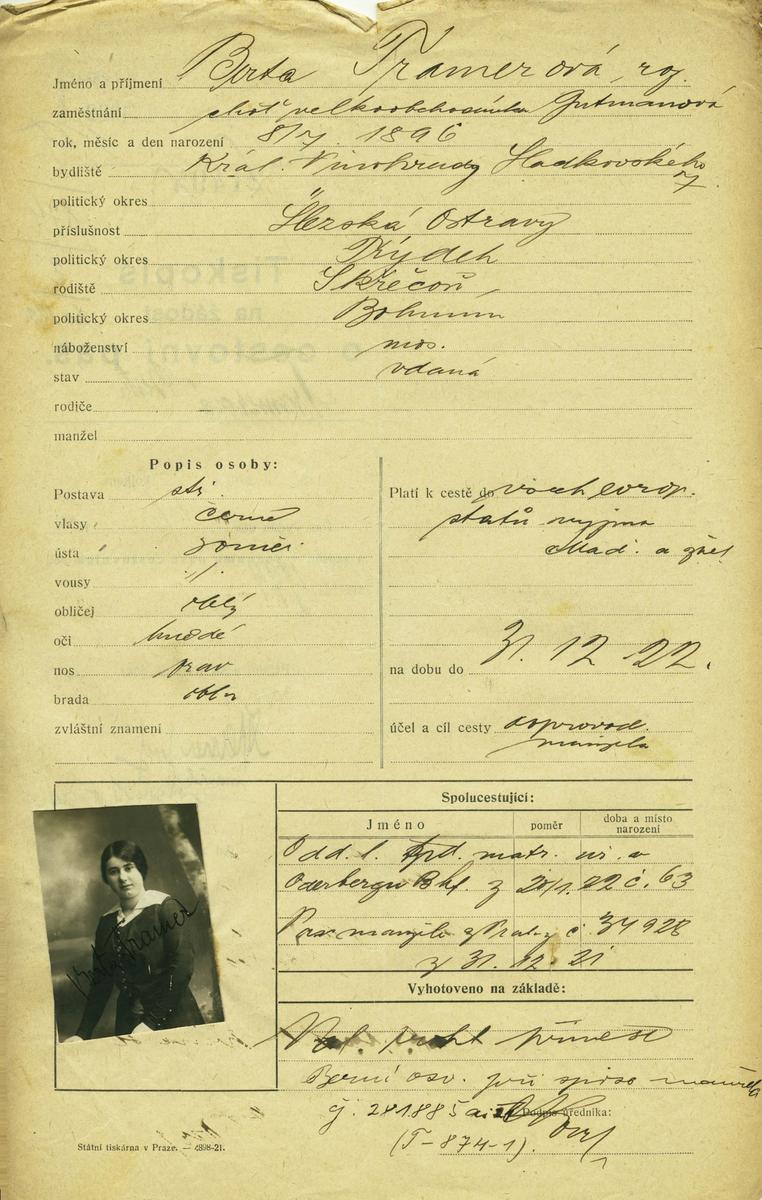 Jméno a příjmení Berta Tramerová, roz.
zaměstnání choť velkoobchodníka Gutmanová
rok, měsíc a den narození 8/7. 1896
bydliště Král. Vinohrady Sladkovského 7
politický okres "
příslušnost Slezská Ostrava
politický okres Frýdek
rodiště Skřečoň
politický okres Bohumín
náboženství mos.
stav vdaná
rodiče
manžel
Popis osoby:
Postava stř.
vlasy černé
ústa souměr.
vousy ./.
obličej oblý
oči hnědé
nos prav
brada oblá
zvláštní znamení
Platí k cestě do všech evrop.
států vyjma
Maď. a zpět
na dobu do 31. 12. 22.
účel a cíl cesty doprovod.
manžela
Berta Tramer
Spolucestující:
Jméno poměr doba a místo narození
Odd. l. matr. úř. v
Oderbergu Bhf. z 20/1. 22 č. 63
Pas manžela z Prahy č. 34928
z 31. 12. 21
Vyhotoveno na základě:
Berní osv. při spise manžela
čj. 281885 ai 21 Podpis úředníka:
(T-874-1).
Státní tiskárna v Praze. — 4898-21.